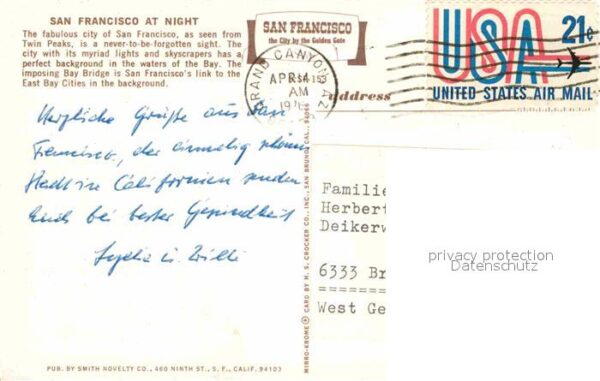 SAN FRANCISCO AT NIGHT
The fabulous city of San Francisco, as seen from
Twin Peaks, is a never-to-be-forgotten sight. The
city with its myriad lights and skyscrapers has a
perfect background in the waters of the Bay. The
imposing Bay Bridge is San Francisco's link to the
East Bay Cities in the background.
SAN FRANCISCO
the City by the Golden Gate
GRAND CANYON AZ
APR 4
AM
address
USA 21¢
UNITED STATES AIR MAIL
Herzliche Grüße aus San
Francisco, der einmalig schönen
Stadt in Californien senden
Euch bei bester Gesundheit
Lydia u. Willi
Familie
Herbert
Deikerw
6333 Br
West Ge
privacy protection
Datenschutz
MIRRO-KROME ® CARD BY H. S. CROCKER CO., INC., SAN BRUNO, CAL.
PUB. BY SMITH NOVELTY CO., 460 NINTH ST., S. F., CALIF. 94103